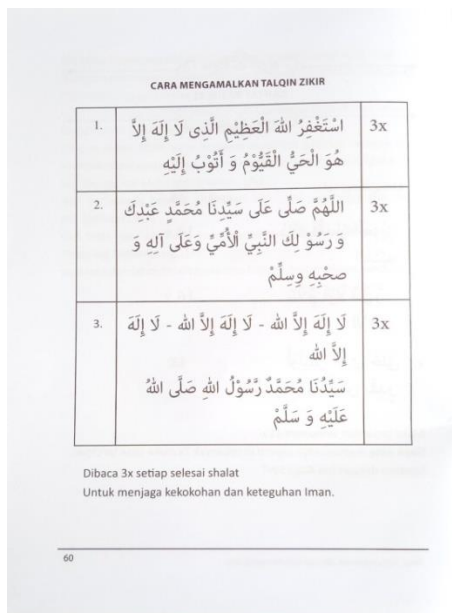 CARA MENGAMALKAN TALQIN ZIKIR
1. اسْتَغْفِرُ اللهَ الْعَظِيْمِ الَّذِى لَا إِلَهَ إِلاَّ 3x
هُوَ الْحَيُّ الْقَيُّوْمُ وَ أَتُوْبُ إِلَيْهِ
2. اللَّهُمَّ صَلِّى عَلَى سَيِّدِنَا مُحَمَّدٍ عَبْدِكَ 3x
وَ رَسُوْ لِكَ النَّبِيِّ اْلأُمِّيِّ وَعَلَى آلِهِ وَ
صحْبِهِ وِسِلِّمْ
3. لَا إِلَهَ إِلاَّ الله - لَا إِلَهَ إِلاَّ الله - لَا إِلَهَ 3x
إِلاَّ الله
سَيِّدُنَا مُحَمَّدٌ رَّسُوْلُ اللهِ صَلَّى اللهُ
عَلَيْهِ وَ سَلَّمْ
Dibaca 3x setiap selesai shalat
Untuk menjaga kekokohan dan keteguhan Iman.
60